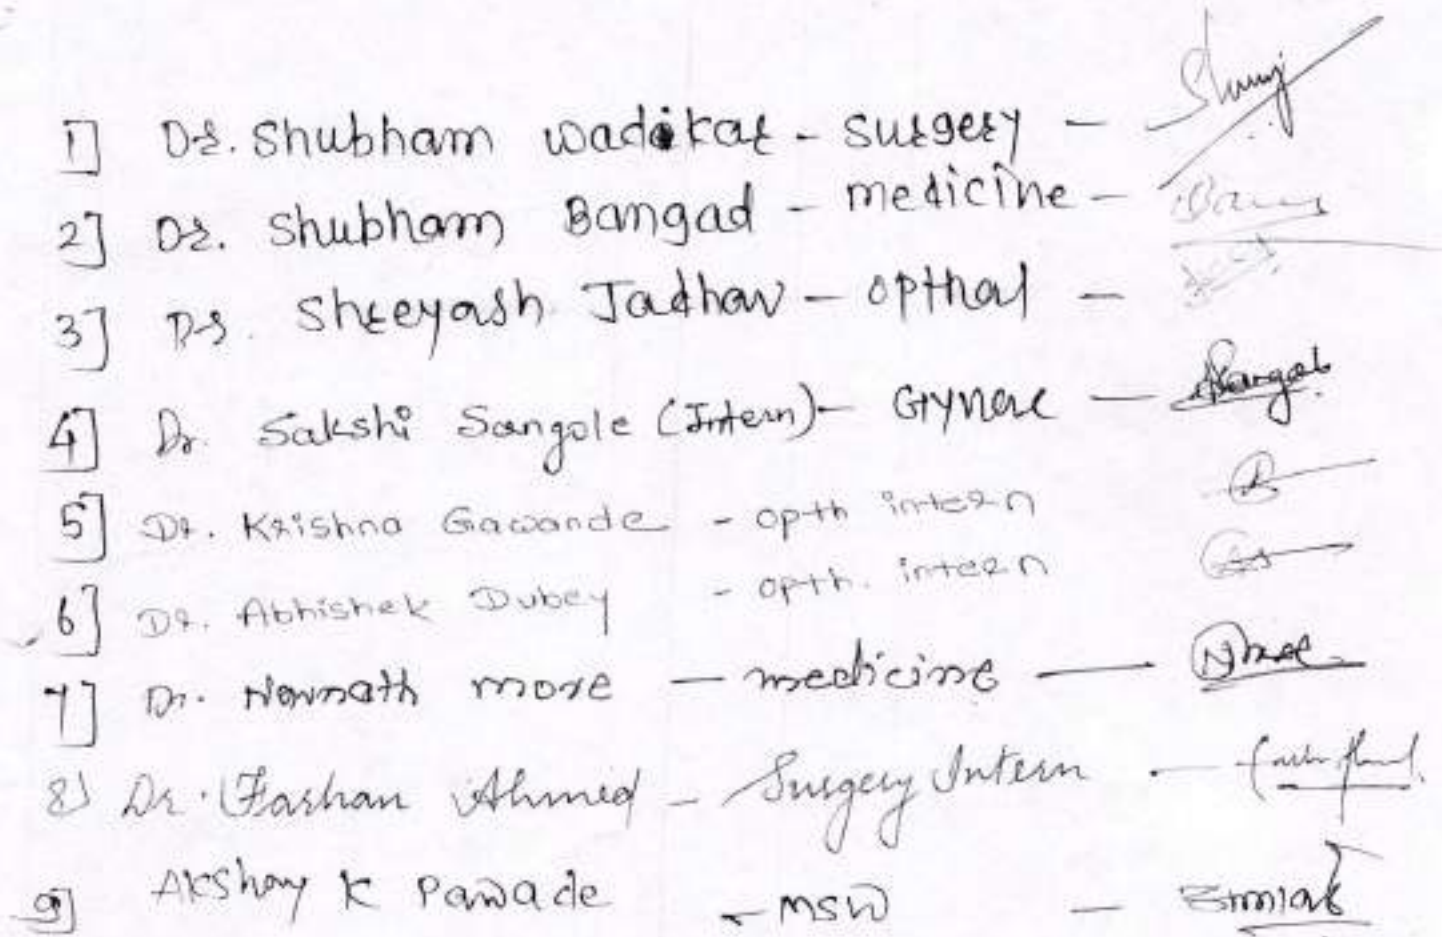 1] Dr. Shubham Wadikar - Surgery -
2] Dr. Shubham Bangad - medicine -
3] Dr. Shreeyash Jadhav - opthal -
4] Dr. Sakshi Sangole (Intern) - Gynaec -
5] Dr. Krishna Gawande - opth intern
6] Dr. Abhishek Dubey - opth. intern
7] Dr. Navnath more - medicine -
8) Dr. Farhan Ahmed - Surgery Intern -
9] Akshay K Pawade - MSW -